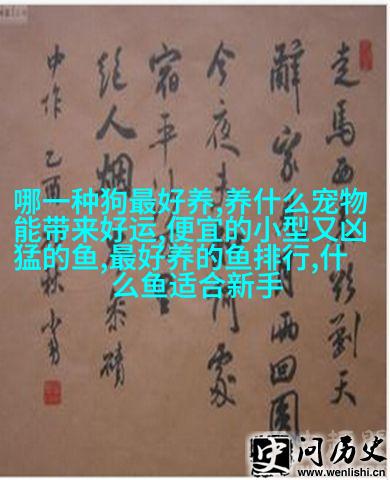 走馬西来欲到天
辭家見月两回圆
今夜未知何處
宿平沙
絕人烟岑參磧
中作 乙酉
哪一种狗最好养,养什么宠物
能带来好运,便宜的小型又凶
猛的鱼,最好养的鱼排行,什
么鱼适合新手
史问历史
www.wenlishi.com